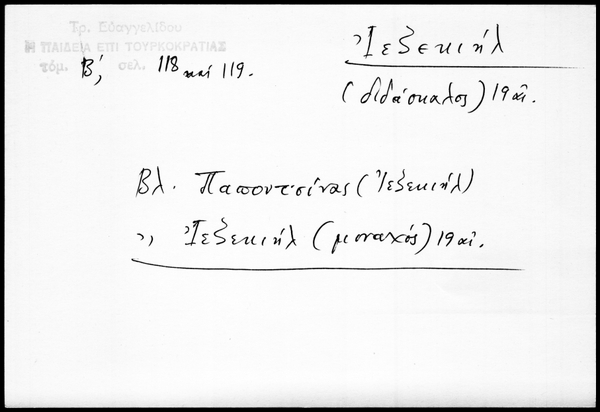 Τρ. Εὐαγγελίδου
Η ΠΑΙΔΕΙΑ ΕΠΙ ΤΟΥΡΚΟΚΡΑΤΙΑΣ
τόμ. Β΄, σελ. 118 καί 119.
Ἰεζεκιήλ
(διδάσκαλος) 19 αἰ.
Βλ. Παποντσίνας (Ἰεζεκιήλ)
,, Ἰεζεκιήλ (μοναχός) 19 αἰ.